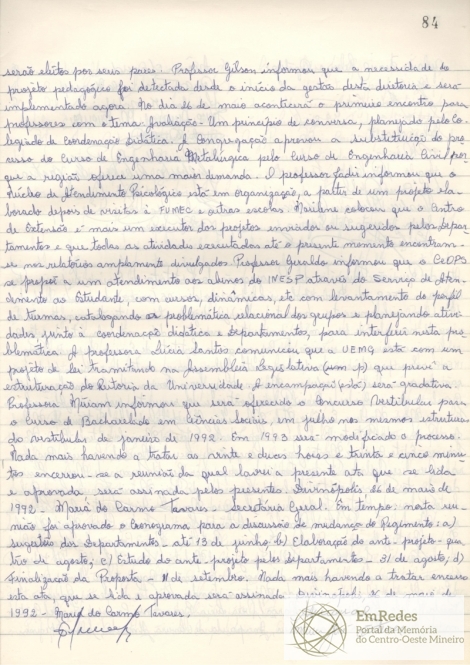 84
serão eleitos por seus pares. Professor Gilson informou que a necessidade do
projeto pedagógico foi detectada desde o início da gestão desta diretoria e será
implementado agora. No dia 26 de maio acontecerá o primeiro encontro para
professores com o tema Avaliação - Um princípio de conversa, planejado pelo Co-
legiado de Coordenação Didática. A Congregação aprovou a substituição do pro-
cesso do Curso de Engenharia Metalúrgica pelo Curso de Engenharia Civil por-
que a região oferece uma maior demanda. O professor informou que o
Núcleo de Atendimento Psicológico está em organização, a partir de um projeto ela-
borado depois de visitas à FUMEC e outras escolas. Marilene colocou que o Centro
de Extensão é mais um executor dos projetos enviados ou sugeridos pelos Depar-
tamentos e que todas as atividades executadas até o presente momento encontram-
se nos relatórios amplamente divulgados. Professor Geraldo informou que o CEOPS
se propôs a um atendimento aos alunos do INESP através do Serviço de Aten-
dimento ao Estudante, com cursos, dinâmicas, etc com levantamento do perfil
de turmas, catalogando a problemática relacional dos grupos e planejando ativi-
dades junto à coordenação didática e Departamentos, para interferir nesta pro-
blemática. A professora Lúcia Santos comunicou que a UEMG está com um
projeto de lei tramitando na Assembléia Legislativa que prevê a
estruturação da Reitoria da Universidade. A encampação será gradativa.
Professora Miriam informou que será oferecido o Concurso Vestibular para
o Curso de Bacharelado em Ciências Sociais, em julho nos mesmos estrutura
do vestibular de janeiro de 1992. Em 1993 será modificado o processo.
Nada mais havendo a tratar às vinte e duas horas e trinta e cinco minu-
tos encerrou-se a reunião da qual lavrei a presente ata que se lida
e aprovada será assinada pelos presentes. Divinópolis 26 de maio de
1992 - Maria do Carmo Tavares - Secretária Geral. Em tempo: nesta reu-
nião foi aprovado o Cronograma para a discussão de mudança do Regimento: a)
sugestão dos Departamentos - até 13 de junho; b) Elaboração do ante-projeto - qua-
tro de agosto; c) Estudo do ante-projeto pelos Departamentos - 31 de agosto; d)
Finalização da Proposta - 11 de setembro. Nada mais havendo a tratar encerro
esta ata, que se lida e aprovada será assinada. Divinópolis, de maio de
1992 - Maria do Carmo Tavares.
EmRedes
Portal da Memória
do Centro-Oeste Mineiro